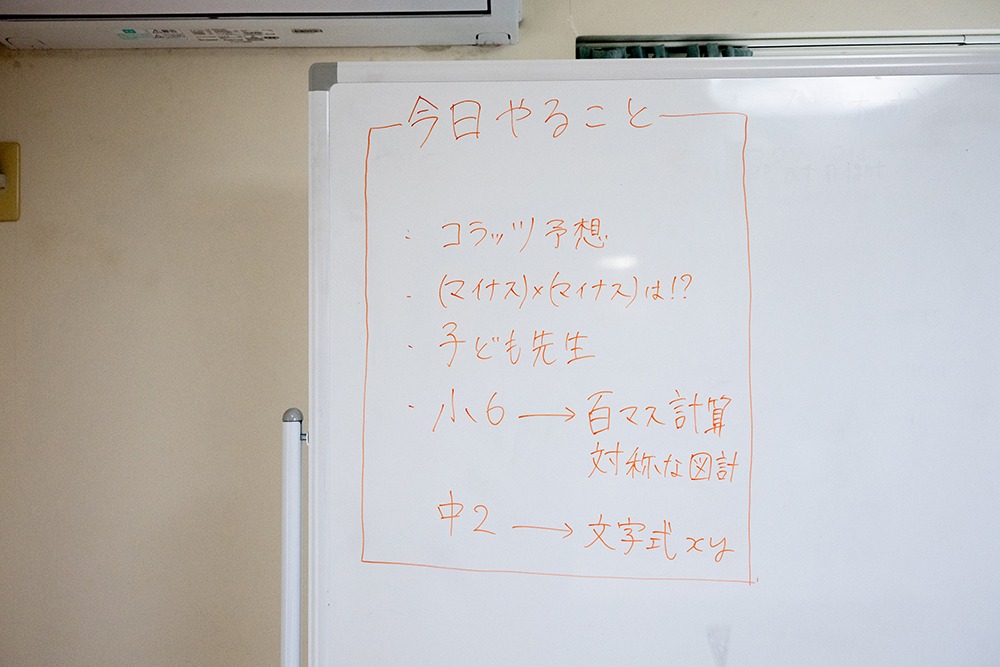 今日やること
・コラッツ予想
・(マイナス)×(マイナス)は!?
・子ども先生
・小6 → 百マス計算
対称な図計
中2 → 文字式 xy